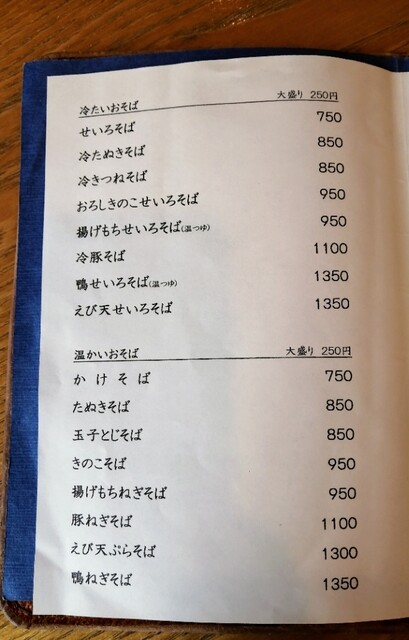 冷たいおそば 大盛り 250円
せいろそば 750
冷たぬきそば 850
冷きつねそば 850
おろしきのこせいろそば 950
揚げもちせいろそば(温つゆ) 950
冷豚そば 1100
鴨せいろそば(温つゆ) 1350
えび天せいろそば 1350
温かいおそば 大盛り 250円
かけそば 750
たぬきそば 850
玉子とじそば 850
きのこそば 950
揚げもちねぎそば 950
豚ねぎそば 1100
えび天ぷらそば 1300
鴨ねぎそば 1350